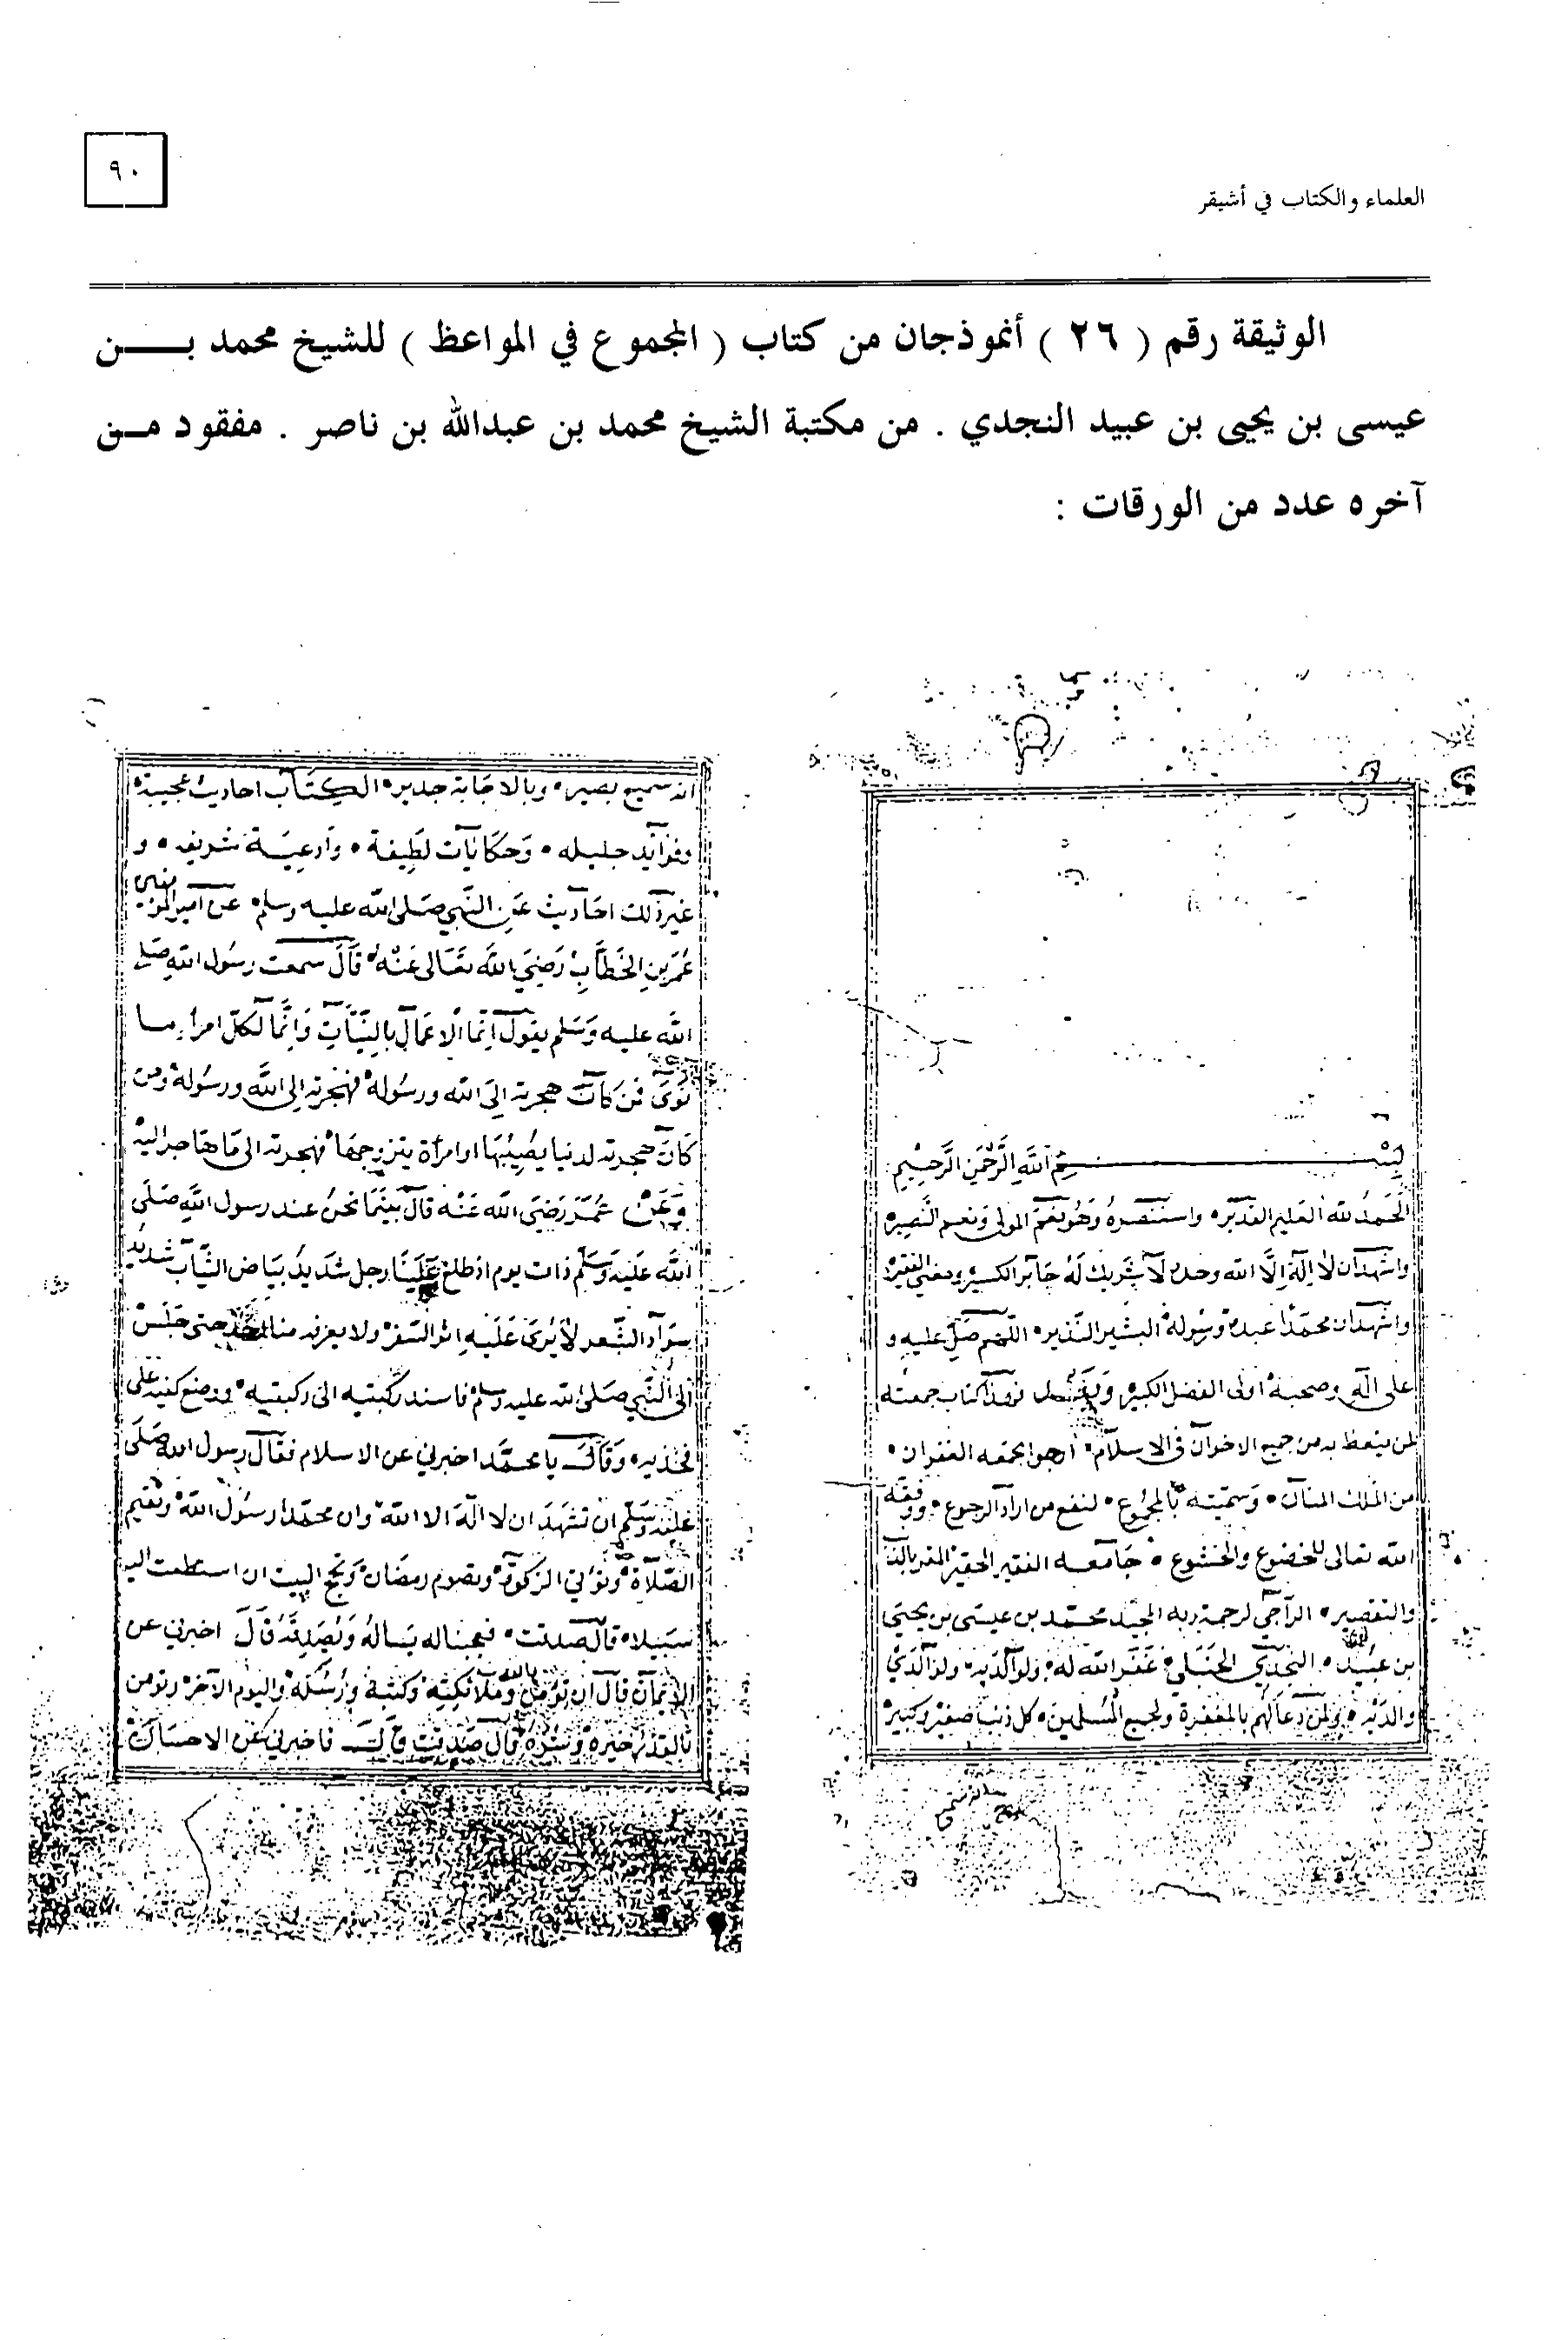 ٩٠
العلماء والكتاب في أشيقر
الوثيقة رقم ( ٢٦ ) أنموذجان من كتاب ( المجموع في المواعظ ) للشيخ محمد بـــن
عيسى بن يحيى بن عبيد النجدي . من مكتبة الشيخ محمد بن عبدالله بن ناصر . مفقود مـن
آخره عدد من الورقات :
بسم الله الرحمن الرحيم
الحمد لله العليم القدير واستنصره وهو نعم المولى ونعم النصير
واشهد ان لا اله الا الله وحده لا شريك له جابر الكسير ومغني الفقير
واشهد ان محمدا عبده ورسوله البشير النذير اللهم صل عليه و
على اله وصحبه اولى الفضل الكبير كتاب جمعته
لمن يتعظ به من جميع الاخوان في الاسلام ارجوا بجمعه الغفران
من الملك المنان وسميته بالمجموع لنفع من اراد الرجوع ووفقه
الله تعالى للخضوع والخشوع جامعه الفقير الحقير المقر بالذنب
والتقصير الراجي لرحمة ربه المجيد محمد بن عيسى بن يحيى
بن عبيد النجدي الحنبلي غفر الله له ولوالديه ولوالدي
والديه ولمن دعا لهم بالمغفرة ولجميع المسلمين كل ذنب صغير وكبير
انه سميع بصير وبالاجابة جدير الكتاب احاديث عجيبة
وفوايد جليله وحكايات لطيفة وادعية شريفه و
غير ذلك احاديث عن النبي صلى الله عليه وسلم عن امير المؤمنين
عمر بن الخطاب رضي الله تعالى عنه قال سمعت رسول الله صلى
الله عليه وسلم يقول انما الاعمال بالنيات وانما لكل امرأ ما
نوى فمن كانت هجرته الى الله ورسوله فهجرته الى الله ورسوله ومن
كان هجرته لدنيا يصيبها او امرأة يتزوجها فهجرته الى ما هاجر اليه
وعن عمر رضي الله عنه قال بينما نحن عند رسول الله صلى
الله عليه وسلم ذات يوم اذ طلع علينا رجل شديد بياض الثياب شديد
سواد الشعر لا يرى عليه اثر السفر ولا يعرفه منا احد حتى جلس
الى النبي صلى الله عليه وسلم فاسند ركبتيه الى ركبتيه ووضع كفيه على
فخذيه وقال يا محمد اخبرني عن الاسلام فقال رسول الله صلى
عليه وسلم ان تشهد ان لا اله الا الله وان محمدا رسول الله وتقيم
الصلاة وتؤتي الزكوة وتصوم رمضان وتحج البيت ان استطعت اليه
سبيلا قال صدقت فعجبنا له يساله ويصدقه قال اخبرني عن
الايمان قال ان تؤمن بالله وملائكته وكتبه ورسله واليوم الآخر وتومن
بالقدر خيره وشره قال صدقت قال فاخبرني عن الاحسان